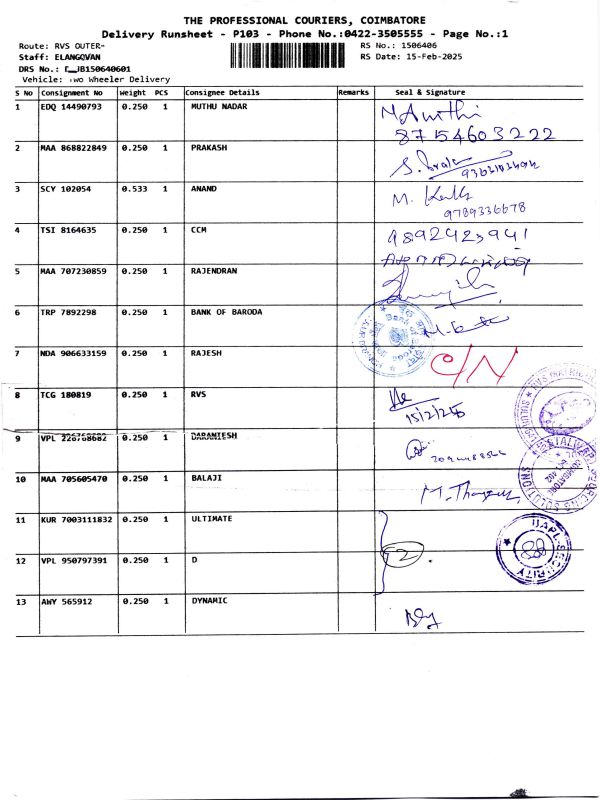 THE PROFESSIONAL COURIERS, COIMBATORE
Delivery Runsheet - P103 - Phone No.:0422-3505555 - Page No.:1
Route: RVS OUTER-
RS No.: 1506406
Staff: ELANGOVAN
RS Date: 15-Feb-2025
DRS No.:
Vehicle: Two Wheeler Delivery
S No Consignment No Weight PCS Consignee Details Remarks Seal & Signature
1 EDQ 14490793 0.250 1 MUTHU NADAR
8754603222
2 MAA 868822849 0.250 1 PRAKASH
3 SCY 102054 0.533 1 ANAND
9789336678
4 TSI 8164635 0.250 1 CCM
9892423941
5 MAA 707230859 0.250 1 RAJENDRAN
6 TRP 7892298 0.250 1 BANK OF BARODA
Bank of Baroda
7 NDA 906633159 0.250 1 RAJESH
C/N
8 TCG 180819 0.250 1 RVS
15/2/25
9 VPL 226768682 0.250 1 DARANIESH
10 MAA 705605470 0.250 1 BALAJI
11 KUR 7003111832 0.250 1 ULTIMATE
12 VPL 950797391 0.250 1 D
UAPL-SECURITY
13 AWY 565912 0.250 1 DYNAMIC